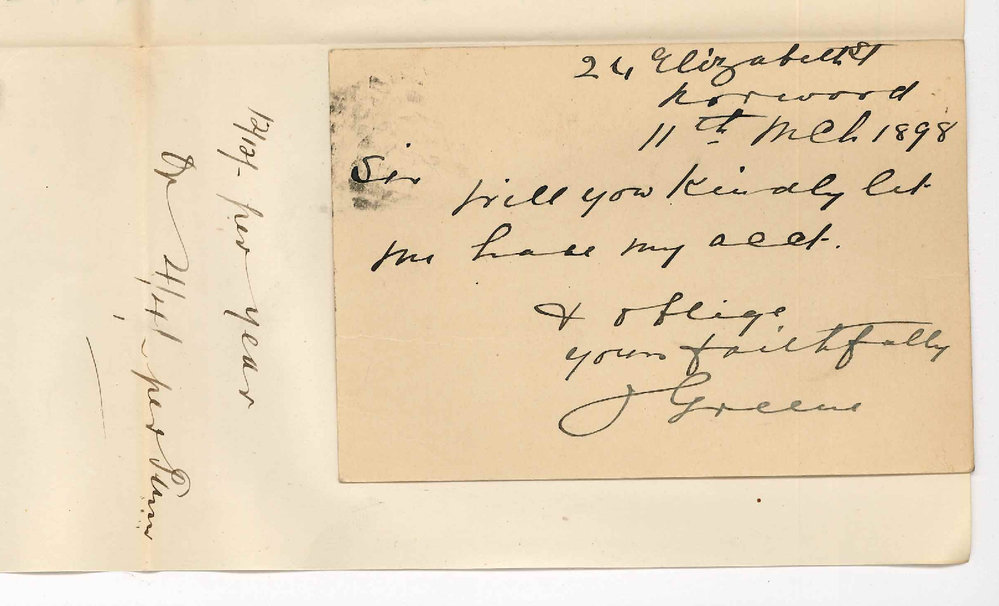 24 Elizabeth St
Norwood
11th Mch 1898
Sir
Will you kindly let
me have my acct.
& oblige
yours faithfully
J Greene
12/12/- per year
Or 4/4/- per Term